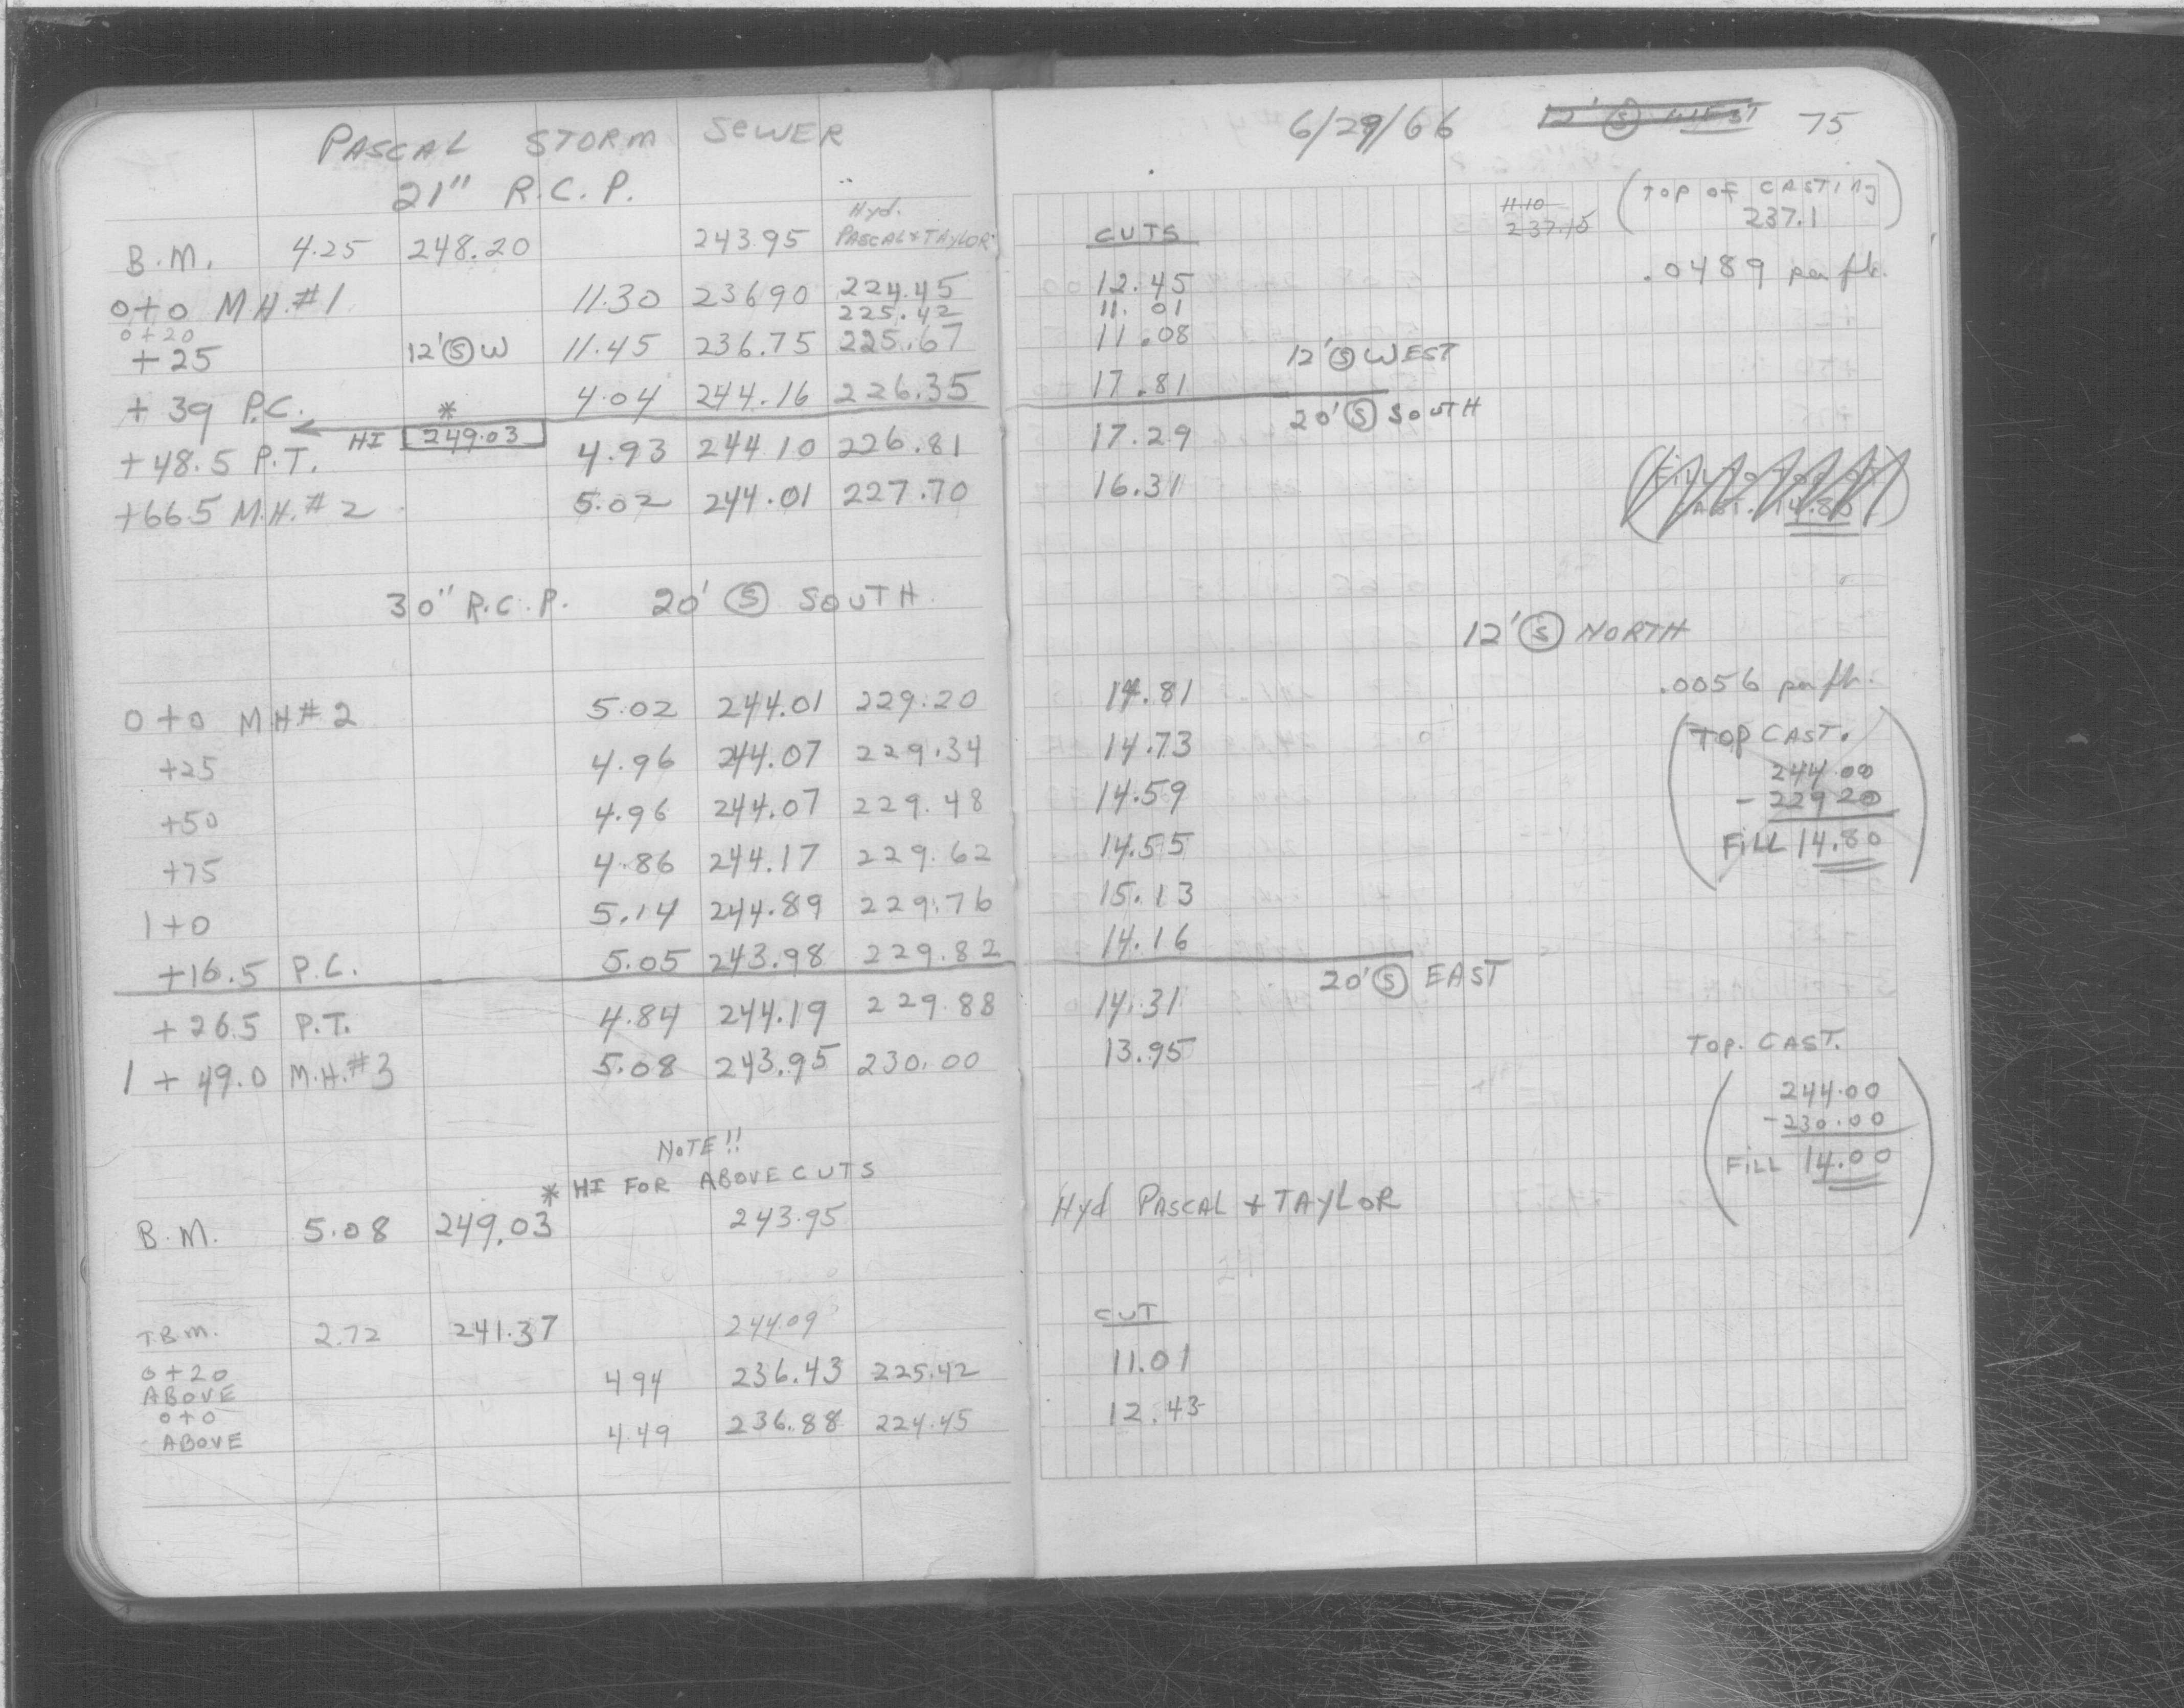 PASCAL STORM SEWER
21" R.C.P.
6/29/66 12' Ⓢ WEST 75
B.M. 4.25 248.20 243.95 Hyd. PASCAL & TAYLOR
CUTS 11.10 237.15 (TOP OF CASTING 237.1)
0+0 M.H.#1 11.30 236.90 224.45 12.45 .0489 per ft.
0+20 225.42 11.01
+25 12'ⓈW 11.45 236.75 225.67 11.08
12'Ⓢ WEST
+39 P.C. 4.04 244.16 226.35 17.81
* HI 249.03 20'Ⓢ SOUTH
+48.5 P.T. 4.93 244.10 226.81 17.29
+66.5 M.H.#2 5.02 244.01 227.70 16.31
14.80
30" R.C.P. 20' Ⓢ SOUTH
12'Ⓢ NORTH
0+0 M.H#2 5.02 244.01 229.20 14.81 .0056 per ft.
+25 4.96 244.07 229.34 14.73
+50 4.96 244.07 229.48 14.59
+75 4.86 244.17 229.62 14.55
1+0 5.14 244.89 229.76 15.13
+16.5 P.C. 5.05 243.98 229.82 14.16
(TOP CAST.
244.00
- 229.20
FILL 14.80)
20'Ⓢ EAST
+26.5 P.T. 4.84 244.19 229.88 14.31
1+49.0 M.H.#3 5.08 243.95 230.00 13.95
TOP. CAST.
(244.00
-230.00
FILL 14.00)
NOTE!!
* HI FOR ABOVE CUTS
B.M. 5.08 249.03 243.95 Hyd PASCAL & TAYLOR
CUT
T.B.M. 2.72 241.37 244.09
0+20 ABOVE 4.94 236.43 225.42 11.01
0+0 ABOVE 4.49 236.88 224.45 12.43